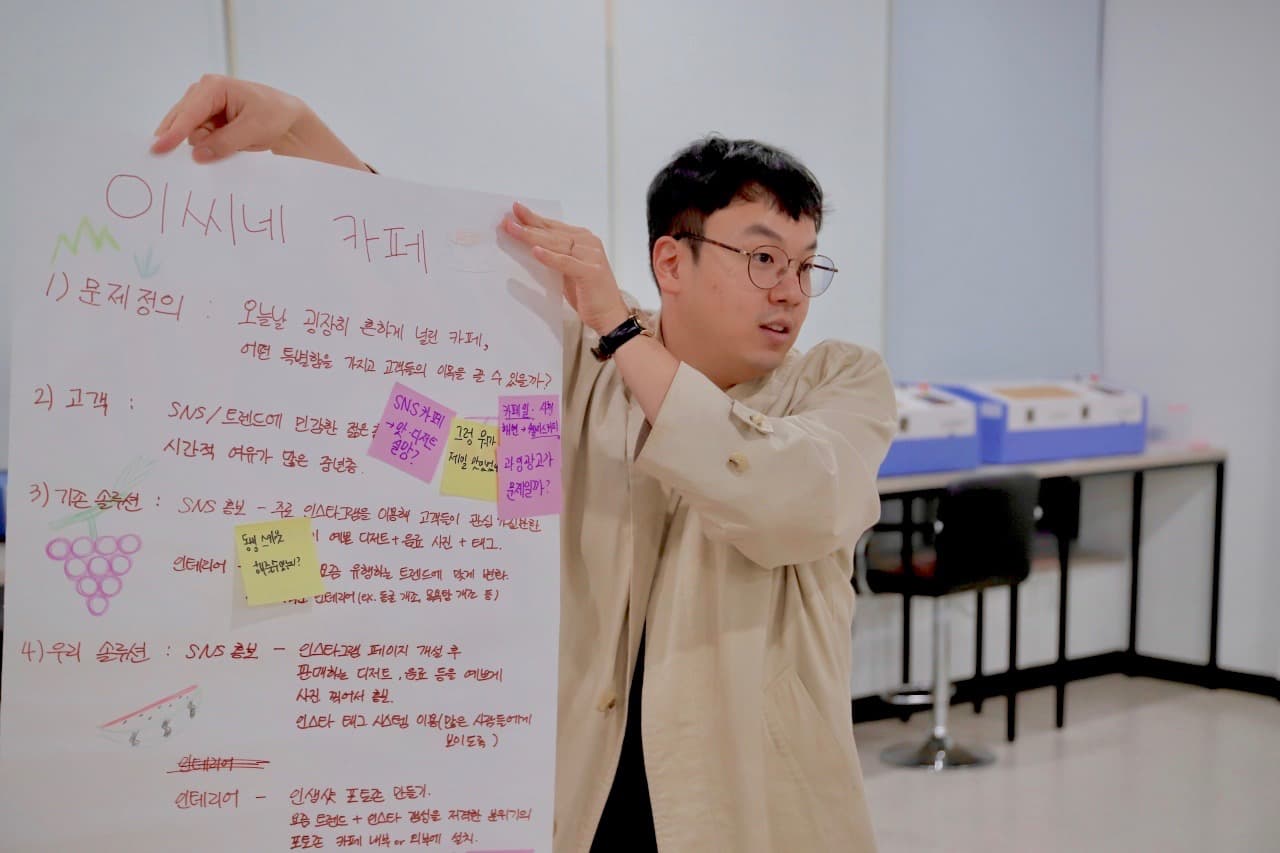 이씨네 카페
1) 문제정의 : 오늘날 굉장히 흔하게 널린 카페,
어떤 특별함을 가지고 고객들의 이목을 끌 수 있을까?
2) 고객 : SNS/트렌드에 민감한 젊은
시간적 여유가 많은 중년층.
SNS카페
→맛·디저트
실망?
그럼 뭐가
제일
카페일·사진
과영광고가
문제일까?
3) 기존 솔루션 : SNS 홍보 - 주로 인스타그램을 이용해 고객들이 관심
예쁜 디저트+음료 사진 + 태그.
인테리어 - 요즘 유행하는 트렌드에 맞게 변화.
인테리어(ex. 동굴 개조, 목욕탕 개조 등)
4) 우리 솔루션 : SNS 홍보 - 인스타그램 페이지 개설 후
판매하는 디저트, 음료 등을 예쁘게
사진 찍어서 홍보.
인스타 태그 시스템 이용(많은 사람들에게
보이도록)
인테리어
인테리어 - 인생샷 포토존 만들기.
요즘 트렌드 + 인스타 갬성을 저격한 분위기의
포토존 카페 내부 or 외부에 설치.